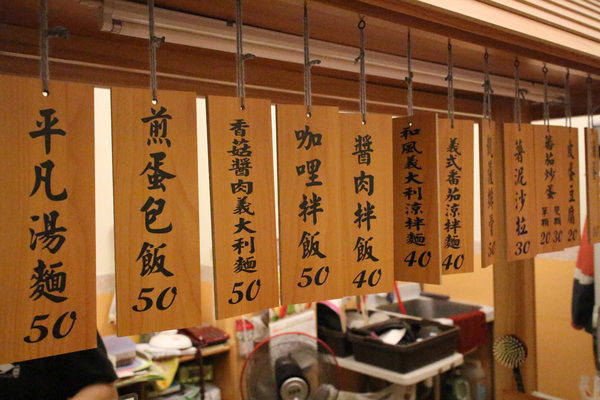 平凡湯麵
50
煎蛋包飯
50
香菇醬肉義大利麵
50
咖哩拌飯
50
醬肉拌飯
40
和風義大利涼拌麵
40
義式番茄涼拌麵
40
50
薯泥沙拉
30
蕃茄炒蛋
單顆 雙顆
20 30
皮蛋豆腐
20